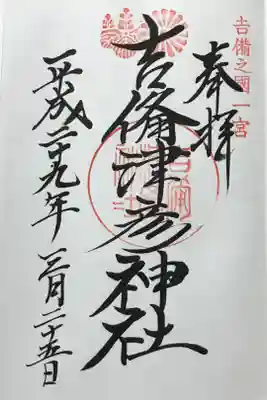 吉備之國一宮
奉拝
吉備津彦神社
平成二十九年 三月二十五日